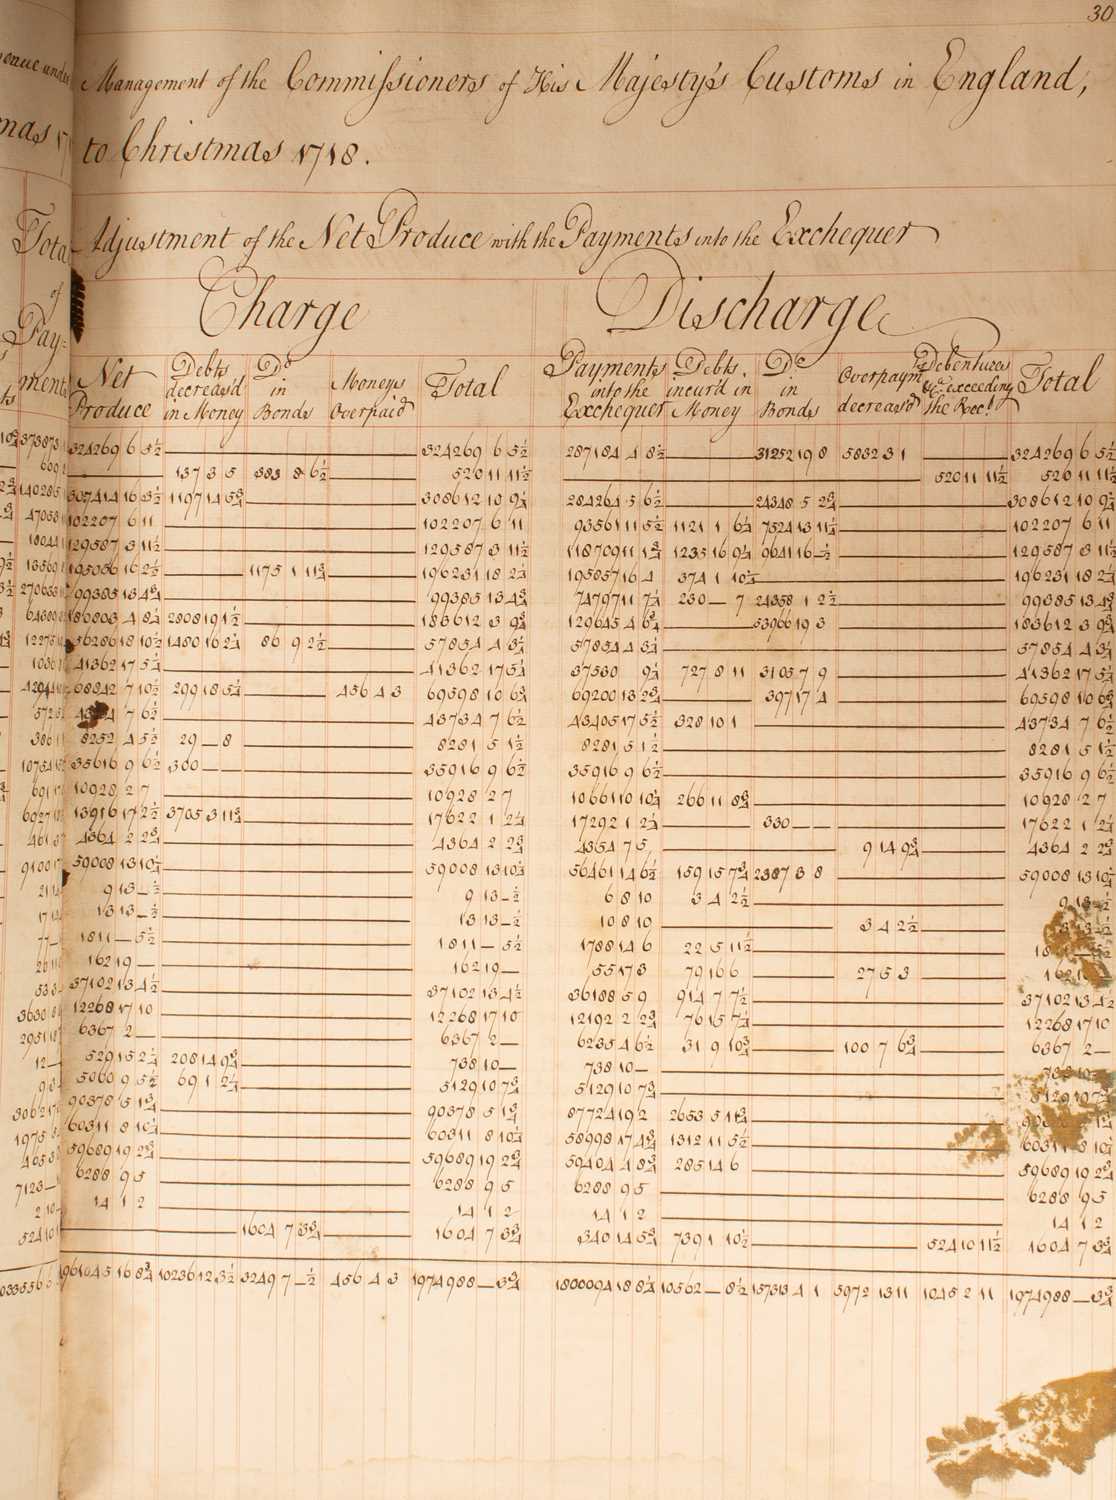 30
Management of the Commissioners of His Majesty's Customs in England,
to Christmas 1718.
Adjustment of the Net Produce with the Payments into the Exchequer
Charge Discharge
Net Produce Debts decreas'd in Money Do. in Bonds Moneys Overpaid Total Payments into the Exchequer Debts incur'd in Money Do. in Bonds Overpaym decreas'd Debentures &c. exceeding the Rec. Total
324269 6 5½ 324269 6 5½ 287184 4 8½ 31252 19 8 5832 3 1 324269 6 5½
137 3 5 383 8 6½ 520 11 11½ 520 11 11½ 520 11 11½
307414 16 3½ 1197 14 5¾ 308612 10 9¼ 284264 5 6½ 24348 5 2¾ 308612 10 9¼
102207 6 11 102207 6 11 93561 11 5½ 1121 1 6¼ 7524 13 11¼ 102207 6 11
129587 3 11½ 129587 3 11½ 118709 11 1¾ 1235 16 9¼ 9641 16 — ½ 129587 3 11½
195056 16 2½ 1175 1 11¾ 196231 18 2¼ 195857 16 4 374 1 10¼ 196231 18 2¼
99385 13 4¾ 99385 13 4¾ 74797 11 7¼ 230 — 7 24358 1 2½ 99385 13 4¾
180803 4 8¼ 2808 19 1½ 183612 3 9¾ 129645 4 6¾ 53966 19 3 183612 3 9¾
56286 18 10½ 1480 16 2¼ 86 9 2½ 57854 4 3¼ 57854 4 3¼ 57854 4 3¼
41362 17 5¼ 41362 17 5¼ 37530 9¼ 727 8 11 3105 7 9 41362 17 5¼
68842 7 10½ 299 18 5¼ 456 4 3 69598 10 6¾ 69200 13 2¾ 397 17 4 69598 10 6¾
7 6½ 43734 7 6½ 43405 17 5½ 328 10 1 43734 7 6½
8252 4 5½ 29 — 8 8281 5 1½ 8281 5 1½ 8281 5 1½
35616 9 6½ 300 — — 35916 9 6½ 35916 9 6½ 35916 9 6½
10928 2 7 10928 2 7 10661 10 10¼ 266 11 8¾ 10928 2 7
13916 17 2½ 3705 3 11¾ 17622 1 2¼ 17292 1 2¼ 330 — — 17622 1 2¼
4364 2 2¾ 4364 2 2¾ 4354 7 5 9 14 9¾ 4364 2 2¾
59008 13 10¼ 59008 13 10¼ 56461 14 6½ 159 15 7¾ 2387 3 8 59008 13 10¼
9 13 — ½ 9 13 — ½ 6 8 10 3 4 2½ 9 13 — ½
13 13 — ½ 13 13 — ½ 10 8 10 3 4 2½
1811 — 5½ 1811 — 5½ 1788 14 6 22 5 11½
162 19 — 162 19 — 55 17 3 79 16 6 27 5 3
37102 13 4½ 37102 13 4½ 36188 5 9 914 7 7½ 37102 13 4½
12268 17 10 12268 17 10 12192 2 2¾ 76 15 7¼ 12268 17 10
6367 2 — 6367 2 — 6235 4 6½ 31 9 10¾ 100 7 6¾ 6367 2 —
529 15 2¼ 208 14 9¾ 738 10 — 738 10 — 738 10
5060 9 5½ 69 1 2¼ 5129 10 7¾ 5129 10 7¾ 5129 10 7¾
90378 5 1¾ 90378 5 1¾ 87724 19 2 2653 5 11¾
60311 8 10¼ 60311 8 10¼ 58998 17 4¾ 1312 11 5½ 60311 8 10¼
59689 19 2¾ 59689 19 2¾ 59404 4 8¾ 285 14 6 59689 19 2¾
6288 9 5 6288 9 5 6288 9 5 6288 9 5
14 1 2 14 1 2 14 1 2 14 1 2
1604 7 3¾ 1604 7 3¾ 340 14 5¾ 739 1 10½ 524 10 11½ 1604 7 3¾
1961045 16 8¾ 10236 12 3½ 3249 7 — ½ 456 4 3 1974988 — 3¾ 1800094 18 8¼ 10562 — 8½ 157313 4 1 5972 13 11 1045 2 11 1974988 — 3¾